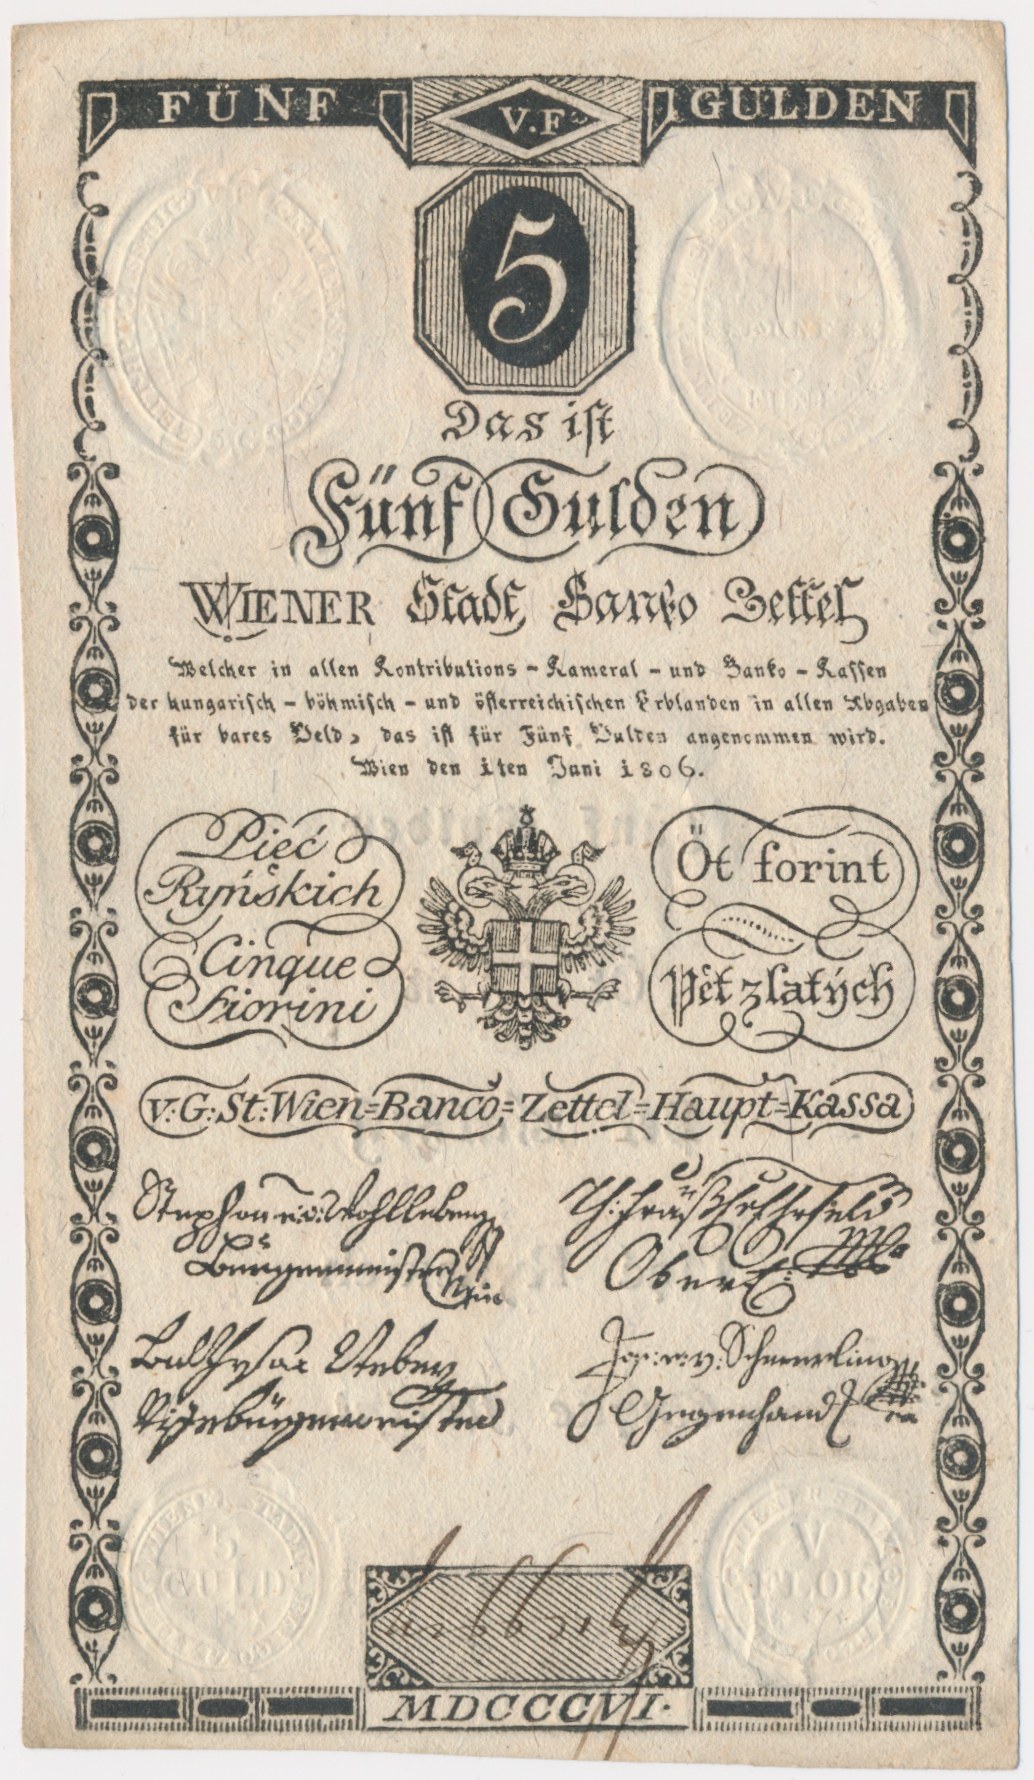 FÜNF V.F GULDEN
5
Das ist
Fünf Gulden
WIENER Stadt Banko Zettel
Welcher in allen Kontributions - Kameral - und Banko - Kassen
der hungarisch - böhmisch - und österreichischen Erblanden in allen Abgaben
für bares Geld, das ist für Fünf Gulden angenommen wird.
Wien den 1ten Juni 1806.
Pięć
Ryńskich
Cinque
Fiorini
Öt forint
Pět zlatých
V: G: St: Wien=Banco=Zettel=Haupt=Kassa
Stephan
Burgermeister
Ober
Vizebürgermeister
Jos: v: Schmerling
Gegenhand
WIENER STADT
5
GULD
V
FLOR
MDCCCVI.